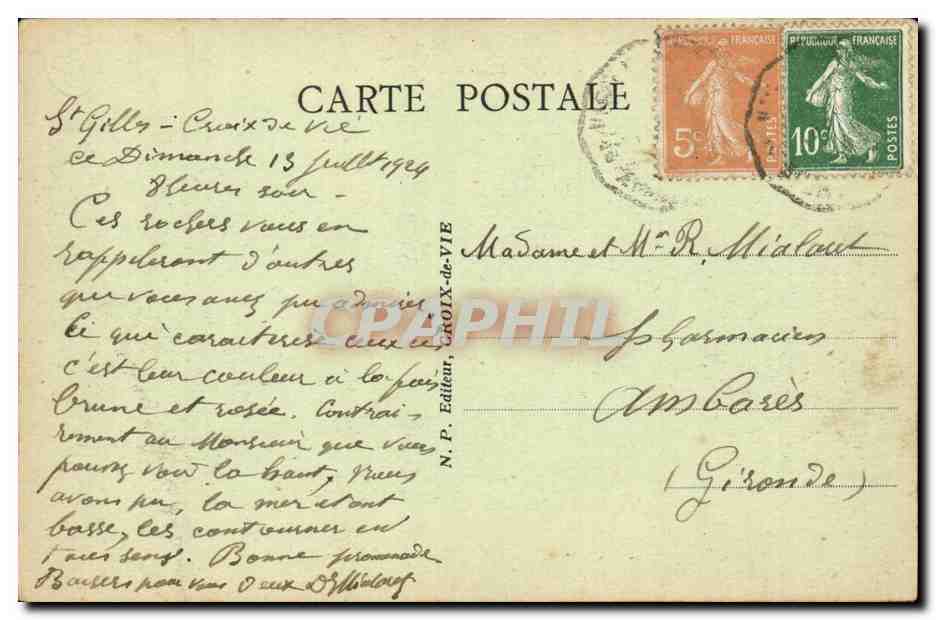 CARTE POSTALE
RÉPUBLIQUE FRANÇAISE
5c
POSTES
RÉPUBLIQUE FRANÇAISE
10c
POSTES
St Gilles - Croix de Vie
ce Dimanche 13 Juillt 1924
8 heures soir -
Ces rochers vous en
rappeleront d'autres
que vous avez pu admirer.
Ce qui caractérise ceux ci
c'est leur couleur à la fois
brune et rosée. Contrai-
rement au Monsieur que vous
pouvez voir là haut, nous
avons pu, la mer étant
basse, les contourner en
tous sens. Bonne promenade
Baisers pour vous deux
N. P. Editeur, CROIX-de-VIE
Madame et Mr R. Mialaret
Pharmacien
Ambarès
(Gironde)
CPAPHIL